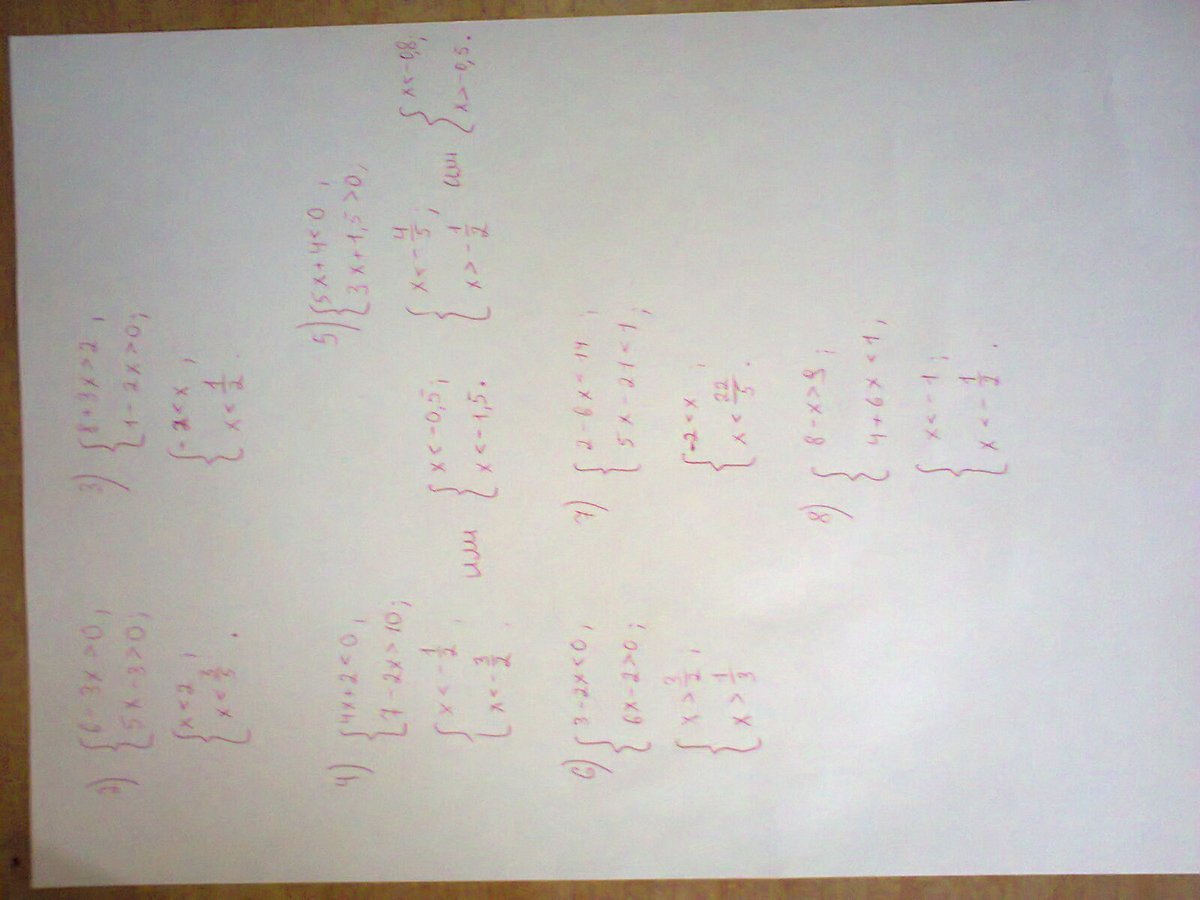 2) { 6 - 3x > 0 ;
{ 5x - 3 > 0 ;
{ x < 2 ;
{ x < 3/5 .
3) { 8 + 3x > 2 ;
{ 1 - 2x > 0 ;
{ -2 < x ;
{ x < 1/2 .
4) { 4x + 2 < 0 ;
{ 7 - 2x > 10 ;
{ x < -1/2 ; или { x < -0,5 ;
{ x < -3/2 . { x < -1,5 .
5) { 5x + 4 < 0 ;
{ 3x + 1,5 > 0 ;
{ x < -4/5 ; или { x < -0,8 ;
{ x > -1/2 { x > -0,5 .
6) { 3 - 2x < 0 ;
{ 6x - 2 > 0 ;
{ x > 3/2 ;
{ x > 1/3
7) { 2 - 6x < 14 ;
{ 5x - 21 < 1 ;
{ -2 < x ;
{ x < 22/5 .
8) { 8 - x > 9 ;
{ 4 + 6x < 1 ;
{ x < -1 ;
{ x < -1/2 .